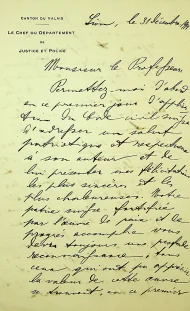 CANTON DU VALAIS
LE CHEF DU DÉPARTEMENT
DE
JUSTICE ET POLICE
Sion, le 31 décembre
Monsieur le Professeur,
Permettez-moi d'abord
en ce premier jour d'applica-
tion du Code
d'adresser un salut
patriotique et respectueux
à son auteur et de
lui présenter mes félicitations
les plus sincères et les
plus chaleureuses. Notre
patrie suisse fortifiée
par l'œuvre de paix et de
progrès accomplie vous
devra toujours une profonde
reconnaissance; tous
ceux qui ont pu apprécier
la valeur de cette œuvre
en ce premier